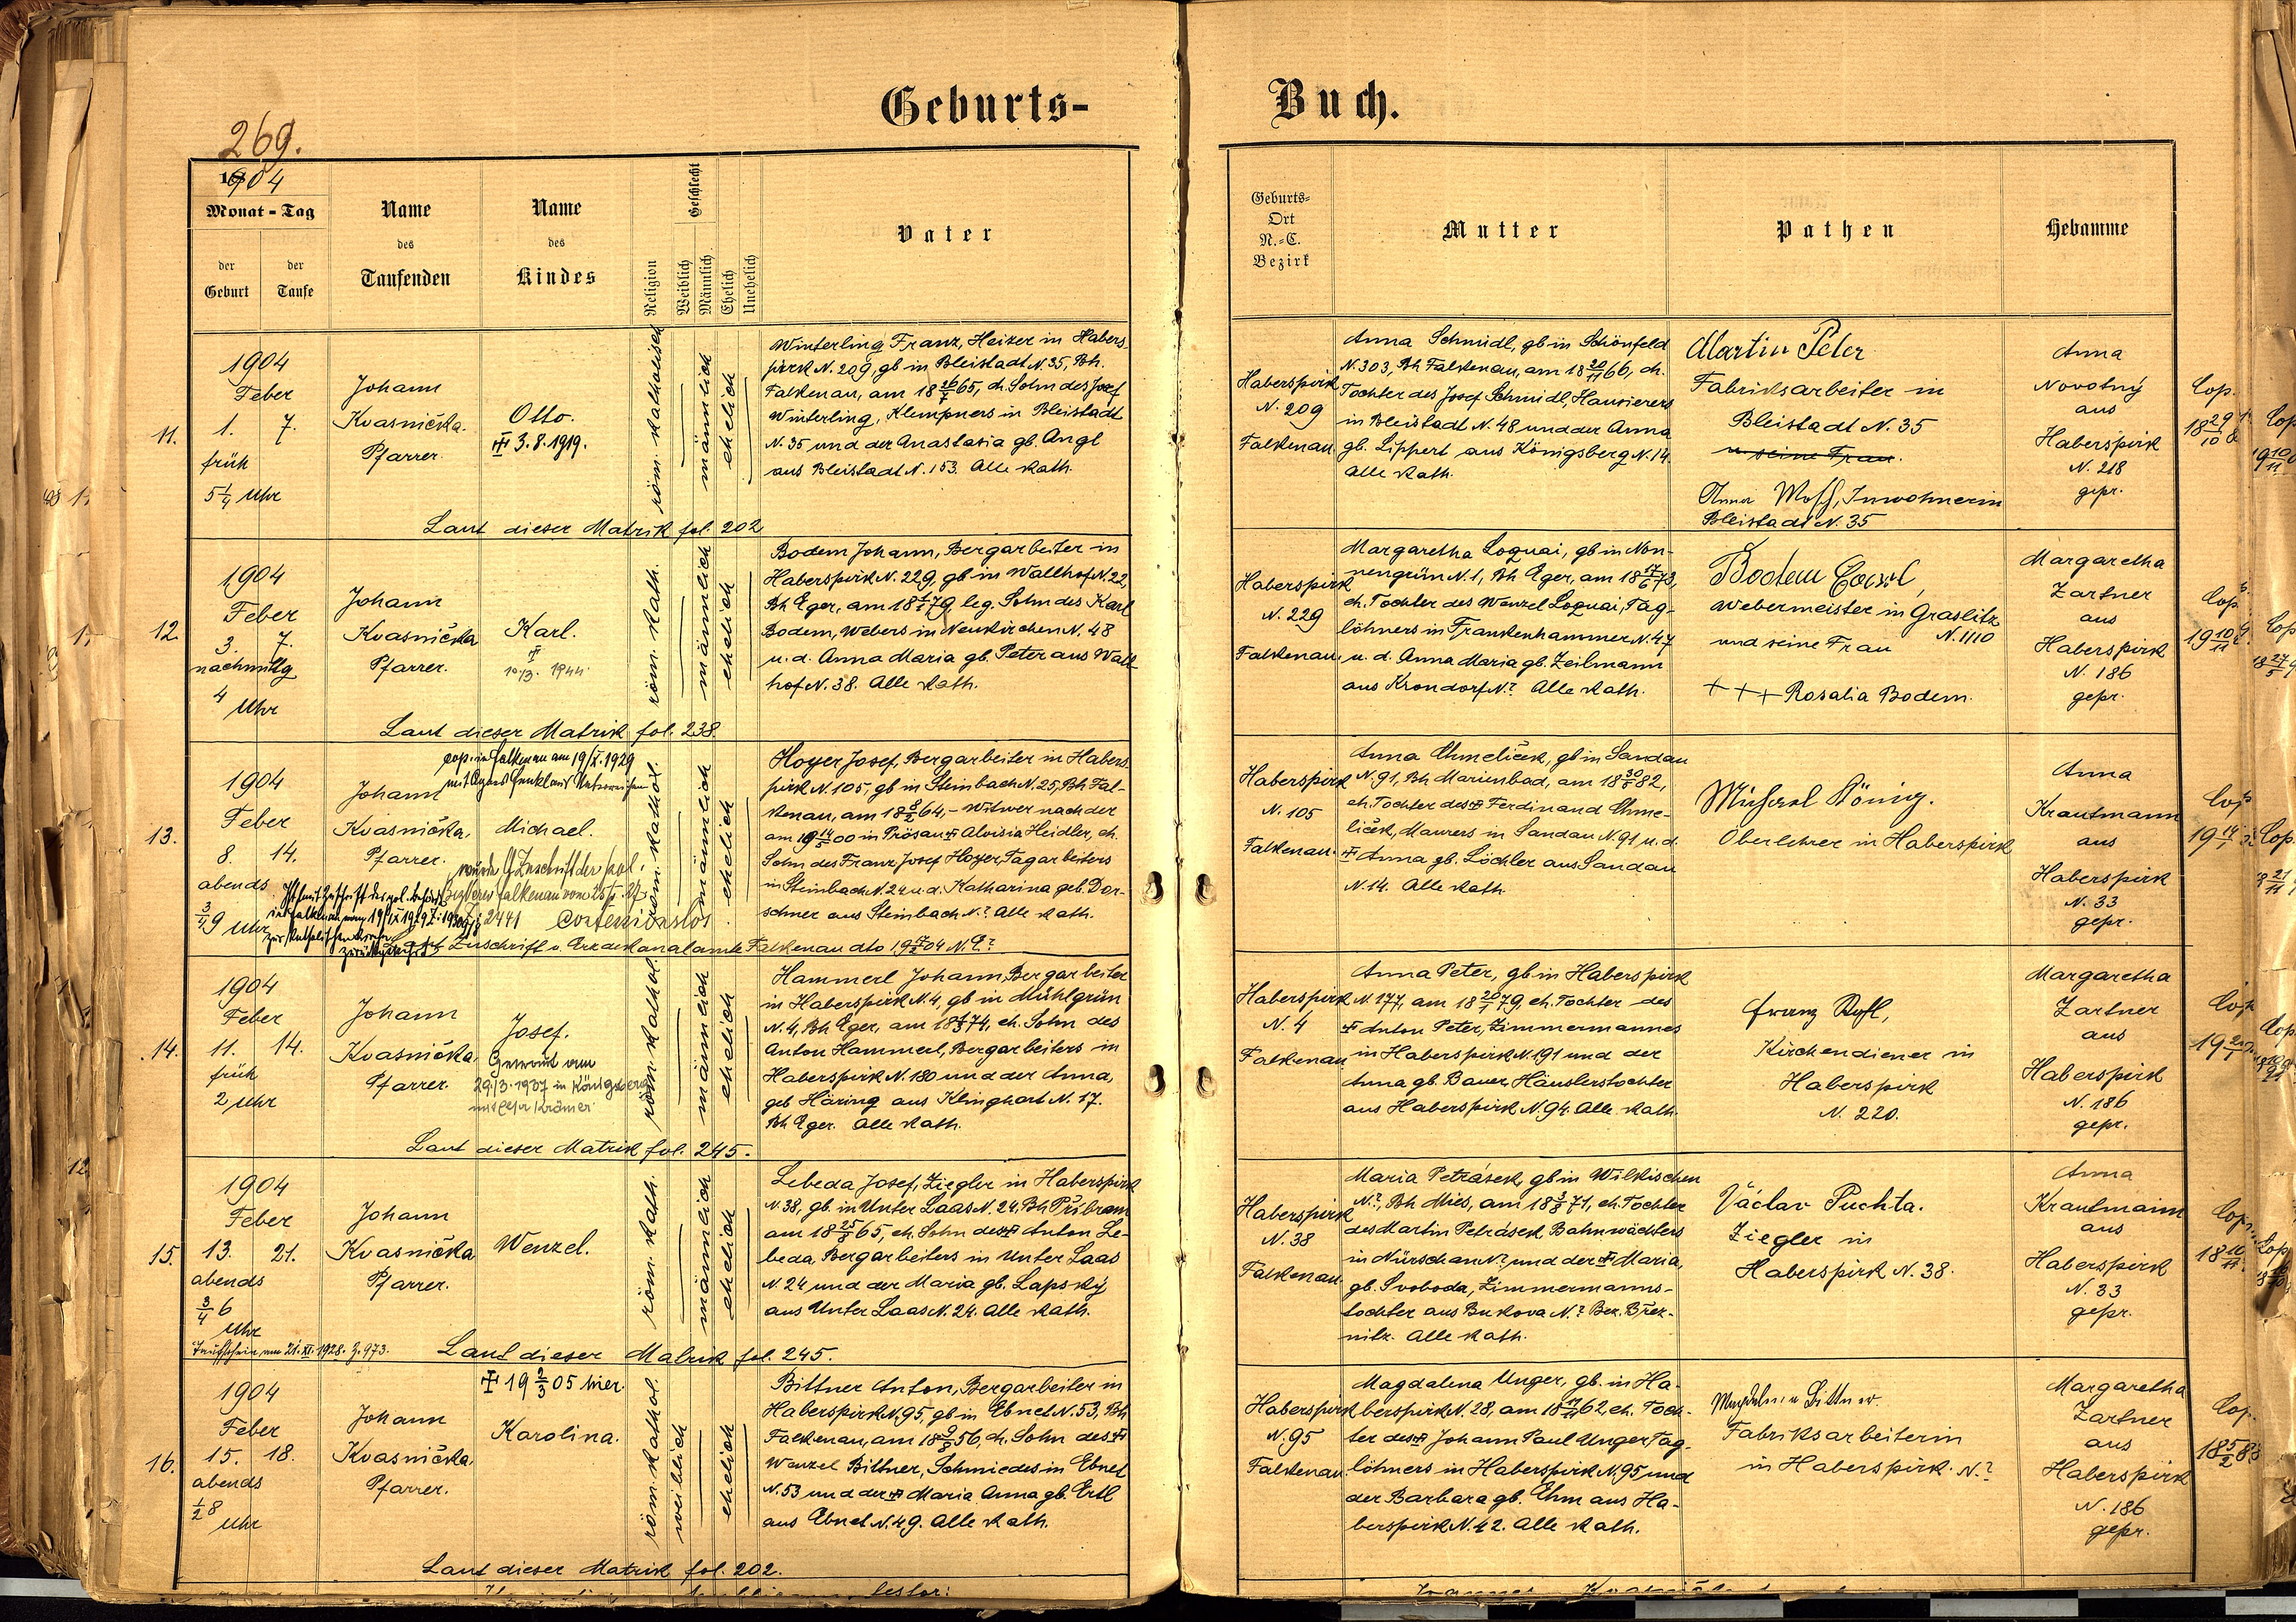 Geburts-
Buch.
269.
1904
Monat - Tag
der Geburt
der Taufe
Name des Taufenden
Name des Kindes
Religion
Geschlecht
Weiblich
Männlich
Ehelich
Unehelich
Vater
Geburts-
Ort
N.-C.
Bezirk
Mutter
Pathen
Hebamme
11.
1904
Feber
1. 7.
früh
5¼ Uhr
Johann
Kvasnička.
Pfarrer.
Otto.
3.8.1919.
röm. katholisch
männlich
ehelich
Winterling Franz, Heizer in Habers-
pirk N. 209, gb in Bleistadt N. 35, Bh.
Falkenau, am 18 65, eh. Sohn des Josef
Winterling, Klempners in Bleistadt
N. 35 und der Anastasia gb. Angl
aus Bleistadt N. 153. Alle kath.
Laut dieser Matrik fol. 202
Haberspirk
N. 209
Falkenau.
Anna Schmidl, gb in Schönfeld
N. 303, Bh Falkenau, am 18 20/11 66, eh.
Tochter des Josef Schmidl, Hausierers
in Bleistadt N. 48 und der Anna
gb. Lippert aus Königsberg N. 14.
Alle kath.
Martin Peter
Fabriksarbeiter in
Bleistadt N. 35
u seine Frau.
Anna Inwohnerin
Bleistadt N. 35
Anna
Novotný
aus
Haberspirk
N. 218
gepr.
Cop.
12.
1904
Feber
3. 7.
nachmittg
4 Uhr
Johann
Kvasnička
Pfarrer.
Karl.
10/3. 1944.
röm. kath.
männlich
ehelich
Bodem Johann, Bergarbeiter in
Haberspirk N. 229, gb in Wallhof N. 22,
Bh Eger, am 18 79, leg. Sohn des Karl
Bodem, Webers in Neukirchen N. 48
u. d. Anna Maria gb. Peter aus Wall
hof N. 38. Alle kath.
Laut dieser Matrik fol. 238.
Haberspirk
N. 229
Falkenau.
Margaretha Loquai, gb in Non-
nengrün N. 1, Bh Eger, am 18 17/6 73,
eh. Tochter des Wenzel Loquai, Tag-
löhners in Frankenhammer N. 47
u. d. Anna Maria gb. Zeilmann
aus Krondorf N? Alle kath.
Bodem
Webermeister in Graslitz
N. 1110
und seine Frau
+++ Rosalia Bodem.
Margaretha
Zartner
aus
Haberspirk
N. 186
gepr.
Cop.
13.
cop. in Falkenau am 19/X. 1929
1904
Feber
8. 14.
abends
¾9 Uhr
Johann
Kvasnička,
Pfarrer.
Michael.
röm. kathol.
männlich
ehelich
Hoyer Josef, Bergarbeiter in Habers-
pirk N. 105, gb in Steinbach N. 25, Bh Fal-
kenau, am 18 64, - Witwer nach der
am 19 14 00 in Prösau Aloisia Heidler, eh.
Sohn des Franz Josef Hoyer, Tagarbeiters
in Steinbach N. 24 u. d. Katharina geb. Dor-
schner aus Steinbach N? Alle kath.
Zuschrift v. Erzdekanalamte Falkenau dto 19 04 N. E?
Haberspirk
N. 105
Falkenau.
Anna Chmeliček, gb in Sandau
N. 91, Bh Marienbad, am 18 82,
eh. Tochter des Ferdinand Chme-
liček, Maurers in Sandau N. 91 u. d.
Anna gb. Löchler aus Sandau
N. 14. Alle kath.
Michael König.
Oberlehrer in Haberspirk
Anna
Krautmann
aus
Haberspirk
N. 33
gepr.
Cop.
14.
1904
Feber
11. 14.
früh
2 Uhr
Johann
Kvasnička,
Pfarrer.
Josef.
Getraut am
29/3. 1937 in Königsberg
röm. kathol.
männlich
ehelich
Hammerl Johann, Bergarbeiter
in Haberspirk N. 4, gb in Mühlgrün
N. 4, Bh Eger, am 18 74, eh. Sohn des
Anton Hammerl, Bergarbeiters in
Haberspirk N. 180 und der Anna,
geb Häring aus Klinghart N. 17.
Bh Eger. Alle kath.
Laut dieser Matrik fol. 245.
Haberspirk
N. 4
Falkenau.
Anna Peter, gb in Haberspirk
N. 177, am 18 20/1 79, eh. Tochter des
Anton Peter, Zimmermannes
in Haberspirk N. 191 und der
Anna gb. Bauer, Häuslerstochter
aus Haberspirk N. 94. Alle kath.
Franz
Kirchendiener in
Haberspirk
N. 220.
Margaretha
Zartner
aus
Haberspirk
N. 186
gepr.
Cop
15.
1904
Feber
13. 21.
abends
¾6
Uhr
Taufschein am 21. XI. 1928. Z. 973.
Johann
Kvasnička
Pfarrer.
Wenzel.
röm. kath.
männlich
ehelich
Lebeda Josef, Ziegler in Haberspirk
N. 38, gb. in Unter Laas N. 24, Bh Přibram
am 18 25 65, eh. Sohn des Anton Le-
beda, Bergarbeiters in Unter Laas
N. 24 und der Maria gb. Lapský
aus Unter Laas N. 24. Alle kath.
Laut dieser Matrik fol. 245.
Haberspirk
N. 38
Falkenau.
Maria Petrásek, gb in Wilkischen
N?, Bh Mies, am 18 71, eh. Tochter
des Martin Petrásek, Bahnwächters
in Nürschan N?, und der Maria,
gb. Svoboda, Zimmermanns-
tochter aus Bukova N? Bez. Břez-
nitz. Alle kath.
Václav Puchta.
Ziegler in
Haberspirk N. 38.
Anna
Krautmann
aus
Haberspirk
N. 33
gepr.
Cop.
16.
1904
Feber
15. 18.
abends
½8
Uhr
Johann
Kvasnička,
Pfarrer.
19 2/3 05 hier.
Karolina.
röm. kathol.
weiblich
ehelich
Bittner Anton, Bergarbeiter in
Haberspirk N. 95, gb in Ebnet N. 53, Bh
Falkenau, am 18 56, eh. Sohn des
Wenzel Bittner, Schmiedes in Ebnet
N. 53 und der Maria Anna gb. Ertl
aus Ebnet N. 49. Alle kath.
Laut dieser Matrik fol. 202.
Haberspirk
N. 95
Falkenau.
Magdalena Unger, gb. in Ha-
berspirk N. 28, am 18 62, eh. Toch-
ter des Johann Paul Unger Tag-
löhners in Haberspirk N. 95 und
der Barbara gb. Ehm aus Ha-
berspirk N. 42. Alle kath.
Magdalena Bittner.
Fabriksarbeiterin
in Haberspirk. N.?
Margaretha
Zartner
aus
Haberspirk
N. 186
gepr.
Cop.
18 5/2 83